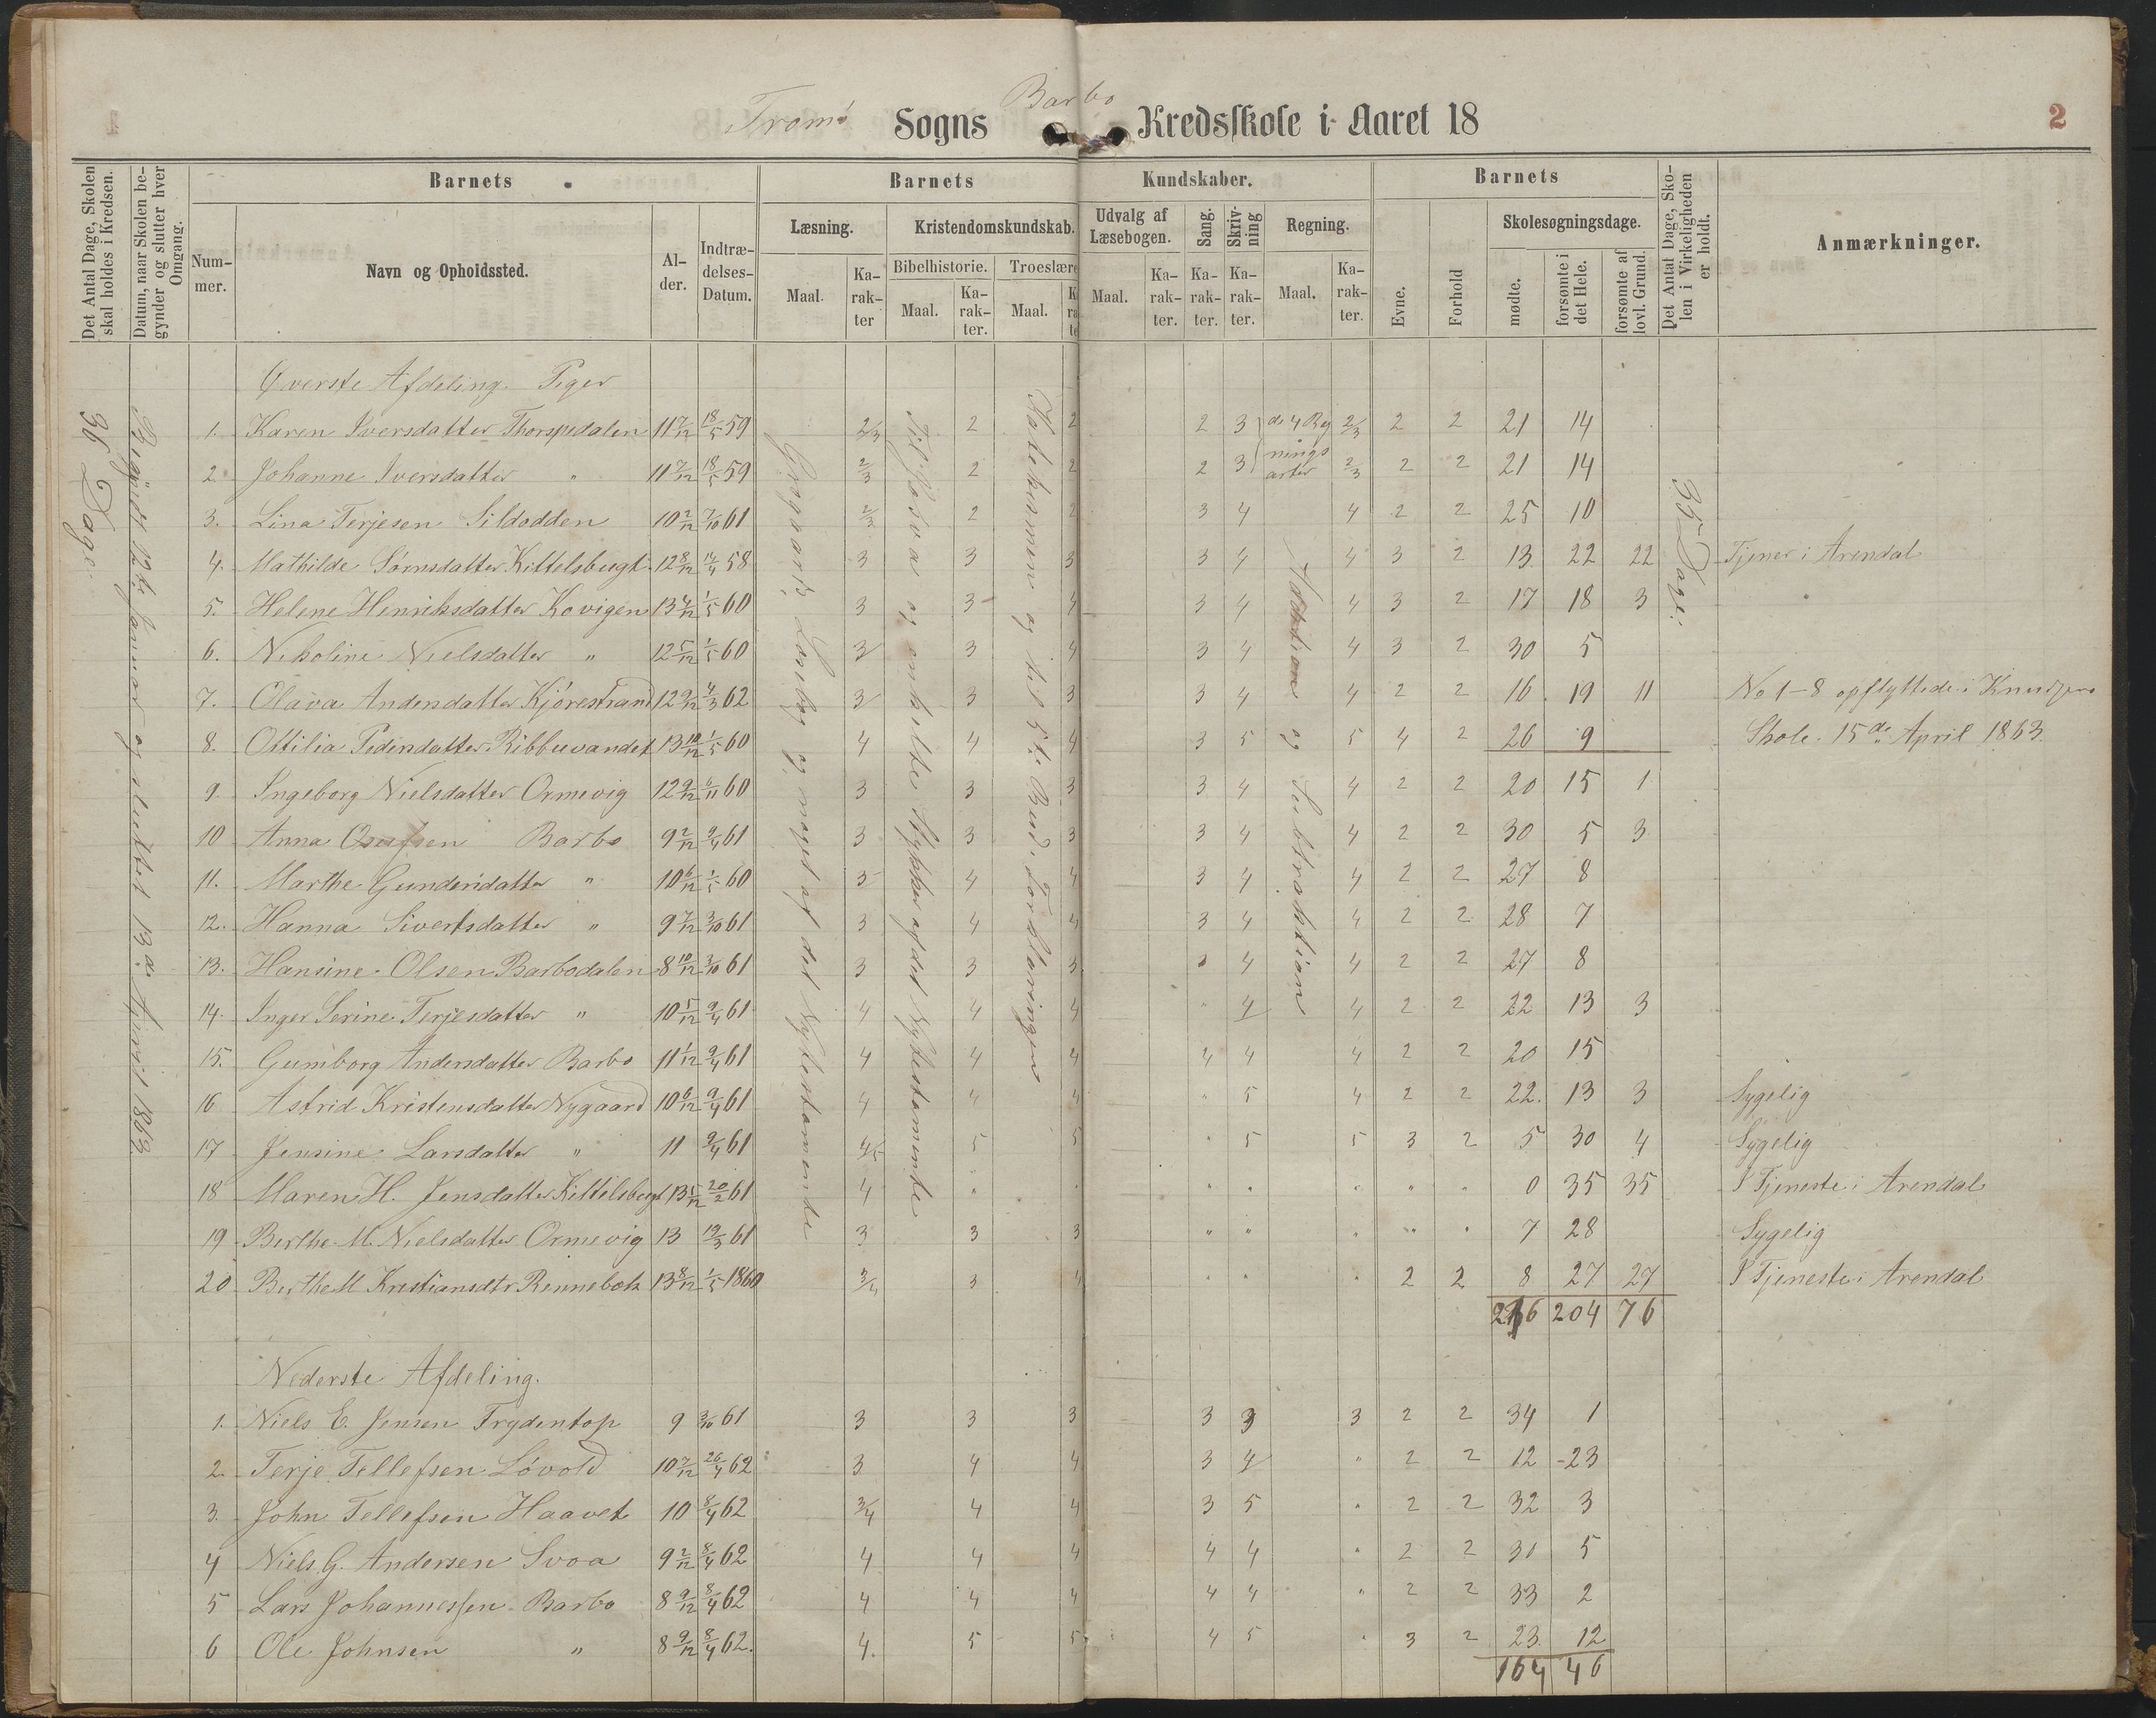 Tromø Sogns Barbo Kredsskole i Aaret 18
1
2
Det Antal Dage, Skolen skal holdes i Kredsen.
Datum, naar Skolen begynder og slutter hver Omgang.
Barnets
Barnets Kundskaber.
Barnets
Det Antal Dage, Skolen i Virkeligheden er holdt.
Anmærkninger.
Nummer.
Navn og Opholdssted.
Alder.
Indtrædelses-Datum.
Læsning.
Kristendomskundskab.
Udvalg af Læsebogen.
Sang.
Skrivning
Regning.
Evne.
Forhold
Skolesøgningsdage.
Bibelhistorie.
Troeslære
Maal.
Karakter
Maal.
Karakter.
Maal.
Maal.
Karakter.
Karakter.
Karakter.
Maal.
Karakter.
mødte.
forsømte i det Hele.
forsømte af lovl. Grund.
36 Dage.
Begyndt 12te Januar og sluttet 13de April 1863
og meget af det Nytestamente
Til Josva og enkelte Stykker af det Nytestamente
Katekismen og til 5te Bud i Forklaringen
Addition og Subtraktion
35 Dage.
Øverste Afdeling. Piger
1. Karen Iversdatter Thorspedalen 11 7/12 18/5 59 2/3 2 2 2 3 de 4 Reg 2/3 2 2 21 14
2. Johanne Iversdatter " 11 7/12 18/5 59 2/3 2 2 2 3 nings arter 2/3 2 2 21 14
3. Lina Terjesen Sildodden 10 2/12 7/10 61 2/3 2 2 3 4 4 2 2 25 10
4. Mathilde Sørnsdatter Kittelsbugt 12 8/12 14/4 58 3 3 3 3 4 4 3 2 13 22 22 Tjener i Arendal
5. Helene Henriksdatter Kovigen 13 4/12 1/5 60 3 3 4 3 4 4 3 2 17 18 3
6. Nikoline Nielsdatter " 12 5/12 1/5 60 3 3 4 3 4 4 3 2 30 5
7. Olava Andersdatter Kjørestrand 12 9/12 4/3 62 3 3 3 3 4 4 2 2 16 19 11 No 1-8 opflyttede i
8. Ottilia Pedersdatter Ribbuvandet 13 10/12 1/5 60 4 4 4 3 5 5 4 2 26 9 Skole 15de April 1863.
9. Ingeborg Nielsdatter Ormevig 12 9/12 6/11 60 3 3 3 3 4 4 2 2 20 15 1
10 Anna Barbo 9 2/12 9/4 61 3 3 3 3 4 4 2 2 30 5 3
11. Marthe Gundersdatter " 10 6/12 1/5 60 3 4 4 3 4 4 2 2 27 8
12. Hanna Sivertsdatter " 9 7/12 3/10 61 3 4 4 3 4 4 2 2 28 7
13. Hansine Olsen Barbodalen 8 10/12 3/10 61 3 3 3 4 4 2 2 27 8
14. Inger Serine Terjesdatter " 10 5/12 9/4 61 4 4 4 " 4 4 2 2 22 13 3
15. Gunborg Andersdatter Barbo 11 1/12 9/4 61 4 4 4 4 4 4 2 2 20 15
16 Astrid Kristensdatter Nygaard 10 6/12 9/4 61 4 4 4 " 5 4 2 2 22. 13 3 Sygelig
17 Jensine Larsdatter " 11 9/4 61 4/5 5 5 " 5 5 3 2 5 30 4 Sygelig
18 Maren H. Jensdatter Kittelsbugt 13 5/12 20/2 61 4 " " " " " " 0 35 35 I Tjeneste i Arendal
19 Berthe M. Nielsdatter Ormevig 13 19/3 61 3 3 3 " " " " " 7 28 Sygelig
20 Berthe M Kristiansdtr Rennebæk 13 8/12 1/5 1860 3/4 3 4 " " " 2 2 8 27 27 I Tjeneste i Arendal
236 204 76
Nederste Afdeling.
1. Niels E. Jensen Frydentop 9 3/10 61 3 3 3 3 3 3 2 2 34 1
2. Terje Tellefsen Løvold 10 7/12 26/4 62 3 4 4 3 4 " 2 2 12 -23
3. John Tellefsen Haavet 10 8/4 62 3/4 4 4 3 5 " 2 2 32 3
4 Niels G. Andersen Svoa 9 2/12 8/4 62 4 4 4 4 4 " 2 2 30 5
5 Lars Johannessen Barbo 8 9/12 8/4 62 4 4 4 4 4 " 2 2 33 2
6 Ole Johnsen " 8 9/12 8/4 62. 4. 5 5 4 5 " 3 2 23 12
164 46